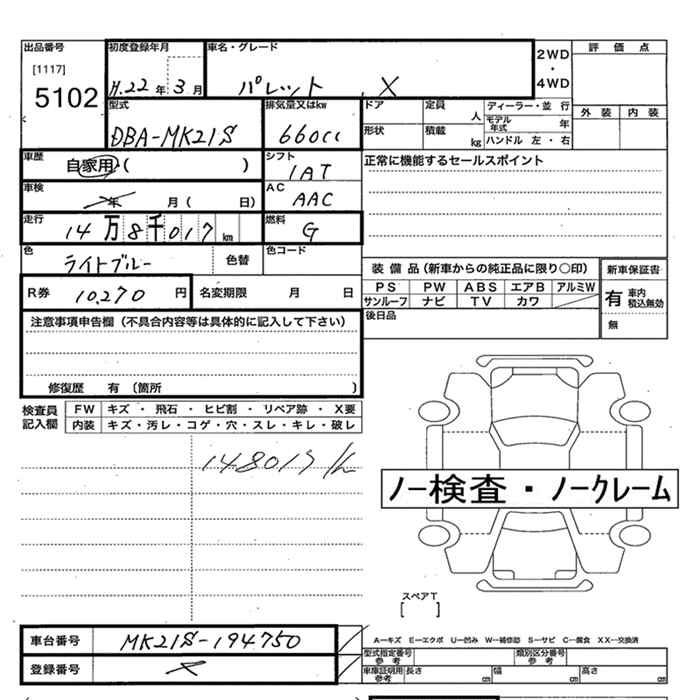 出品番号 初度登録年月 車名・グレード 2WD 評価点
[1117] ・
5102 H.22年3月 パレット X 4WD
型式 排気量又はkw ドア 定員 人 ディーラー・並行 外装 内装
DBA-MK21S 660cc 形状 積載 kg モデル年式 年
ハンドル 左・右
車歴 自家用( ) シフト 1AT 正常に機能するセールスポイント
車検 年 月( 日) AC AAC
走行 14万8千017km 燃料 G
色 ライトブルー 色替 色コード
装備品(新車からの純正品に限り○印) 新車保証書
R券 10,270円 名変期限 月 日 PS PW ABS エアB アルミW 有 車内積込無効
サンルーフ ナビ TV カワ
注意事項申告欄(不具合内容等は具体的に記入して下さい) 後日品 無
修復歴 有 (箇所 )
検査員記入欄 FW キズ・飛石・ヒビ割・リペア跡・X要
内装 キズ・汚レ・コゲ・穴・スレ・キレ・破レ
148017k
ノー検査・ノークレーム
スペアT
[ ]
車台番号 MK21S-194750 A−キズ E−エクボ U−凹み W−補修跡 S−サビ C−腐食 XX−交換済
型式指定番号 参考 類別区分番号 参考
登録番号 車庫証明用 参考 長さ cm 幅 cm 高さ cm